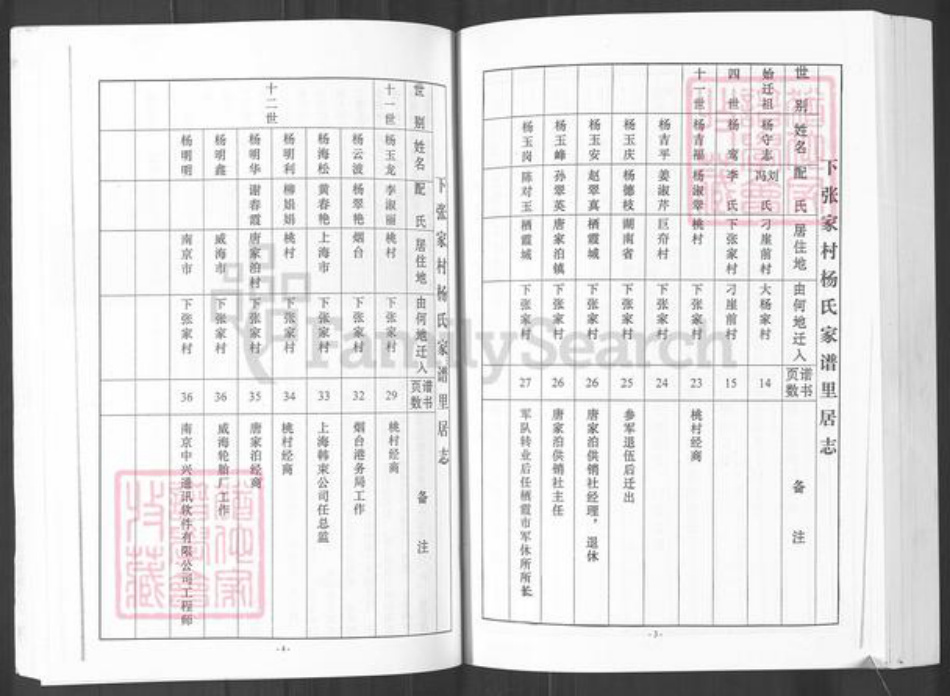 下张家村杨氏家谱里居志
世别 姓名 配氏 居住地 由何地迁入 谱书页数 备注
始迁祖 杨守志 刘冯氏 刁崖前村 大杨家村 14
四世 杨鸾 李氏 下张家村 刁崖前村 15
十一世 杨吉福 杨淑翠 桃村 下张家村 23 桃村经商
杨吉平 姜淑芹 巨夼村 下张家村 24
杨玉庆 杨德枝 湖南省 下张家村 25 参军退伍后迁出
杨玉安 赵翠真 栖霞城 下张家村 26 唐家泊供销社经理，退休
杨玉峰 孙翠英 唐家泊镇 下张家村 26 唐家泊供销社主任
杨玉岗 陈对玉 栖霞城 下张家村 27 军队转业后任栖霞市军休所所长
-3-
下张家村杨氏家谱里居志
世别 姓名 配氏 居住地 由何地迁入 谱书页数 备注
十一世 杨玉龙 李淑丽 桃村 下张家村 29 桃村经商
十二世 杨云波 杨翠艳 烟台 下张家村 32 烟台港务局工作
杨海松 黄春艳 上海市 下张家村 33 上海韩束公司任总监
杨明利 柳娟娟 桃村 下张家村 34 桃村经商
杨明华 谢春霞 唐家泊村 下张家村 35 唐家泊经商
杨明鑫 威海市 下张家村 36 威海轮胎厂工作
杨明明 南京市 下张家村 36 南京中兴通讯软件有限公司工程师
-4-
FamilySearch